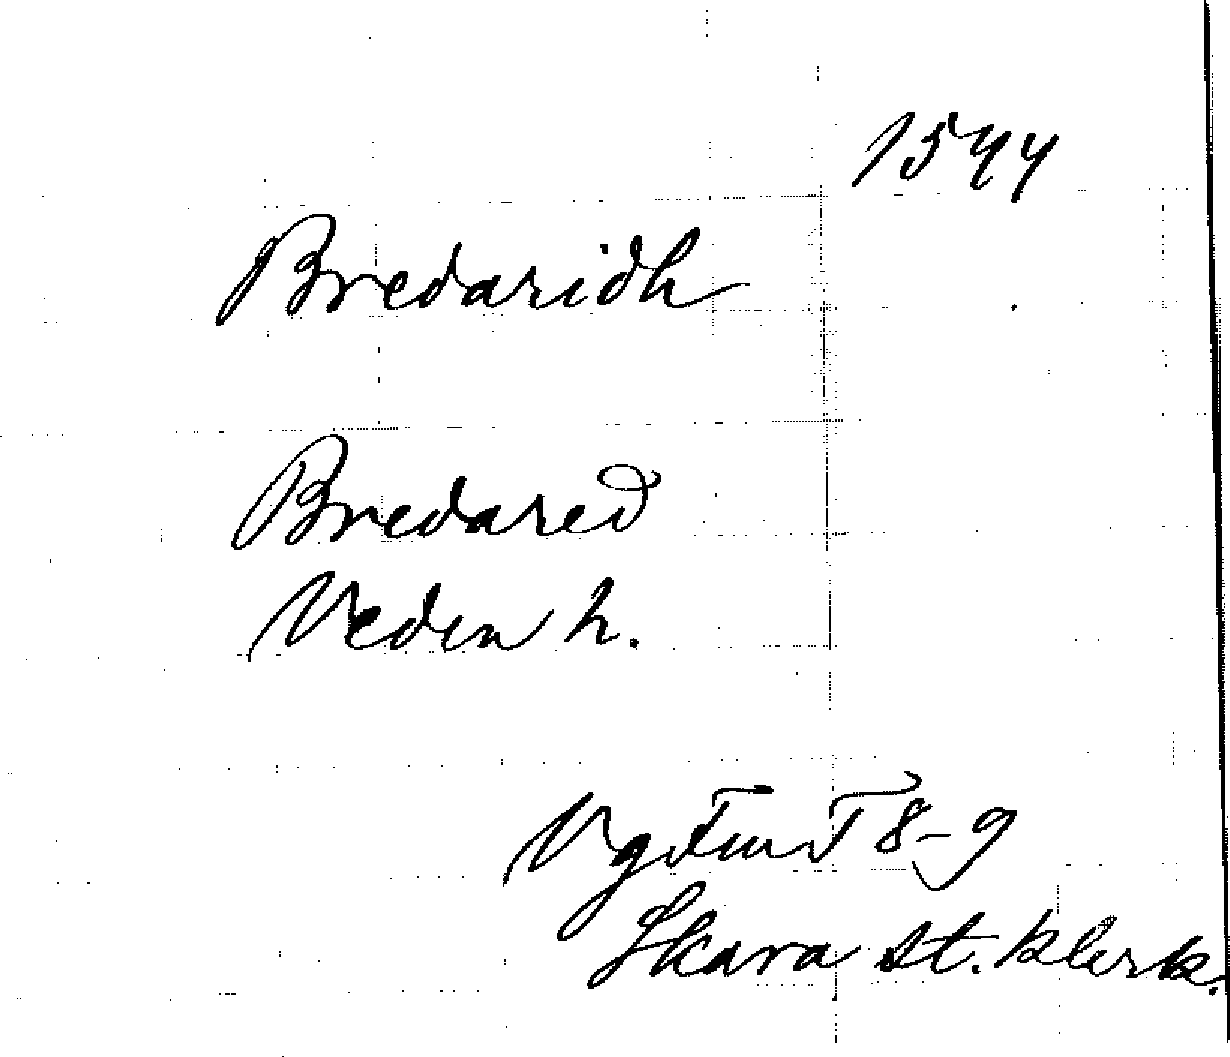 1544
Bredaridh
Bredared
Veden h.
Vg Fmt 8-9
Skara st. klerk.